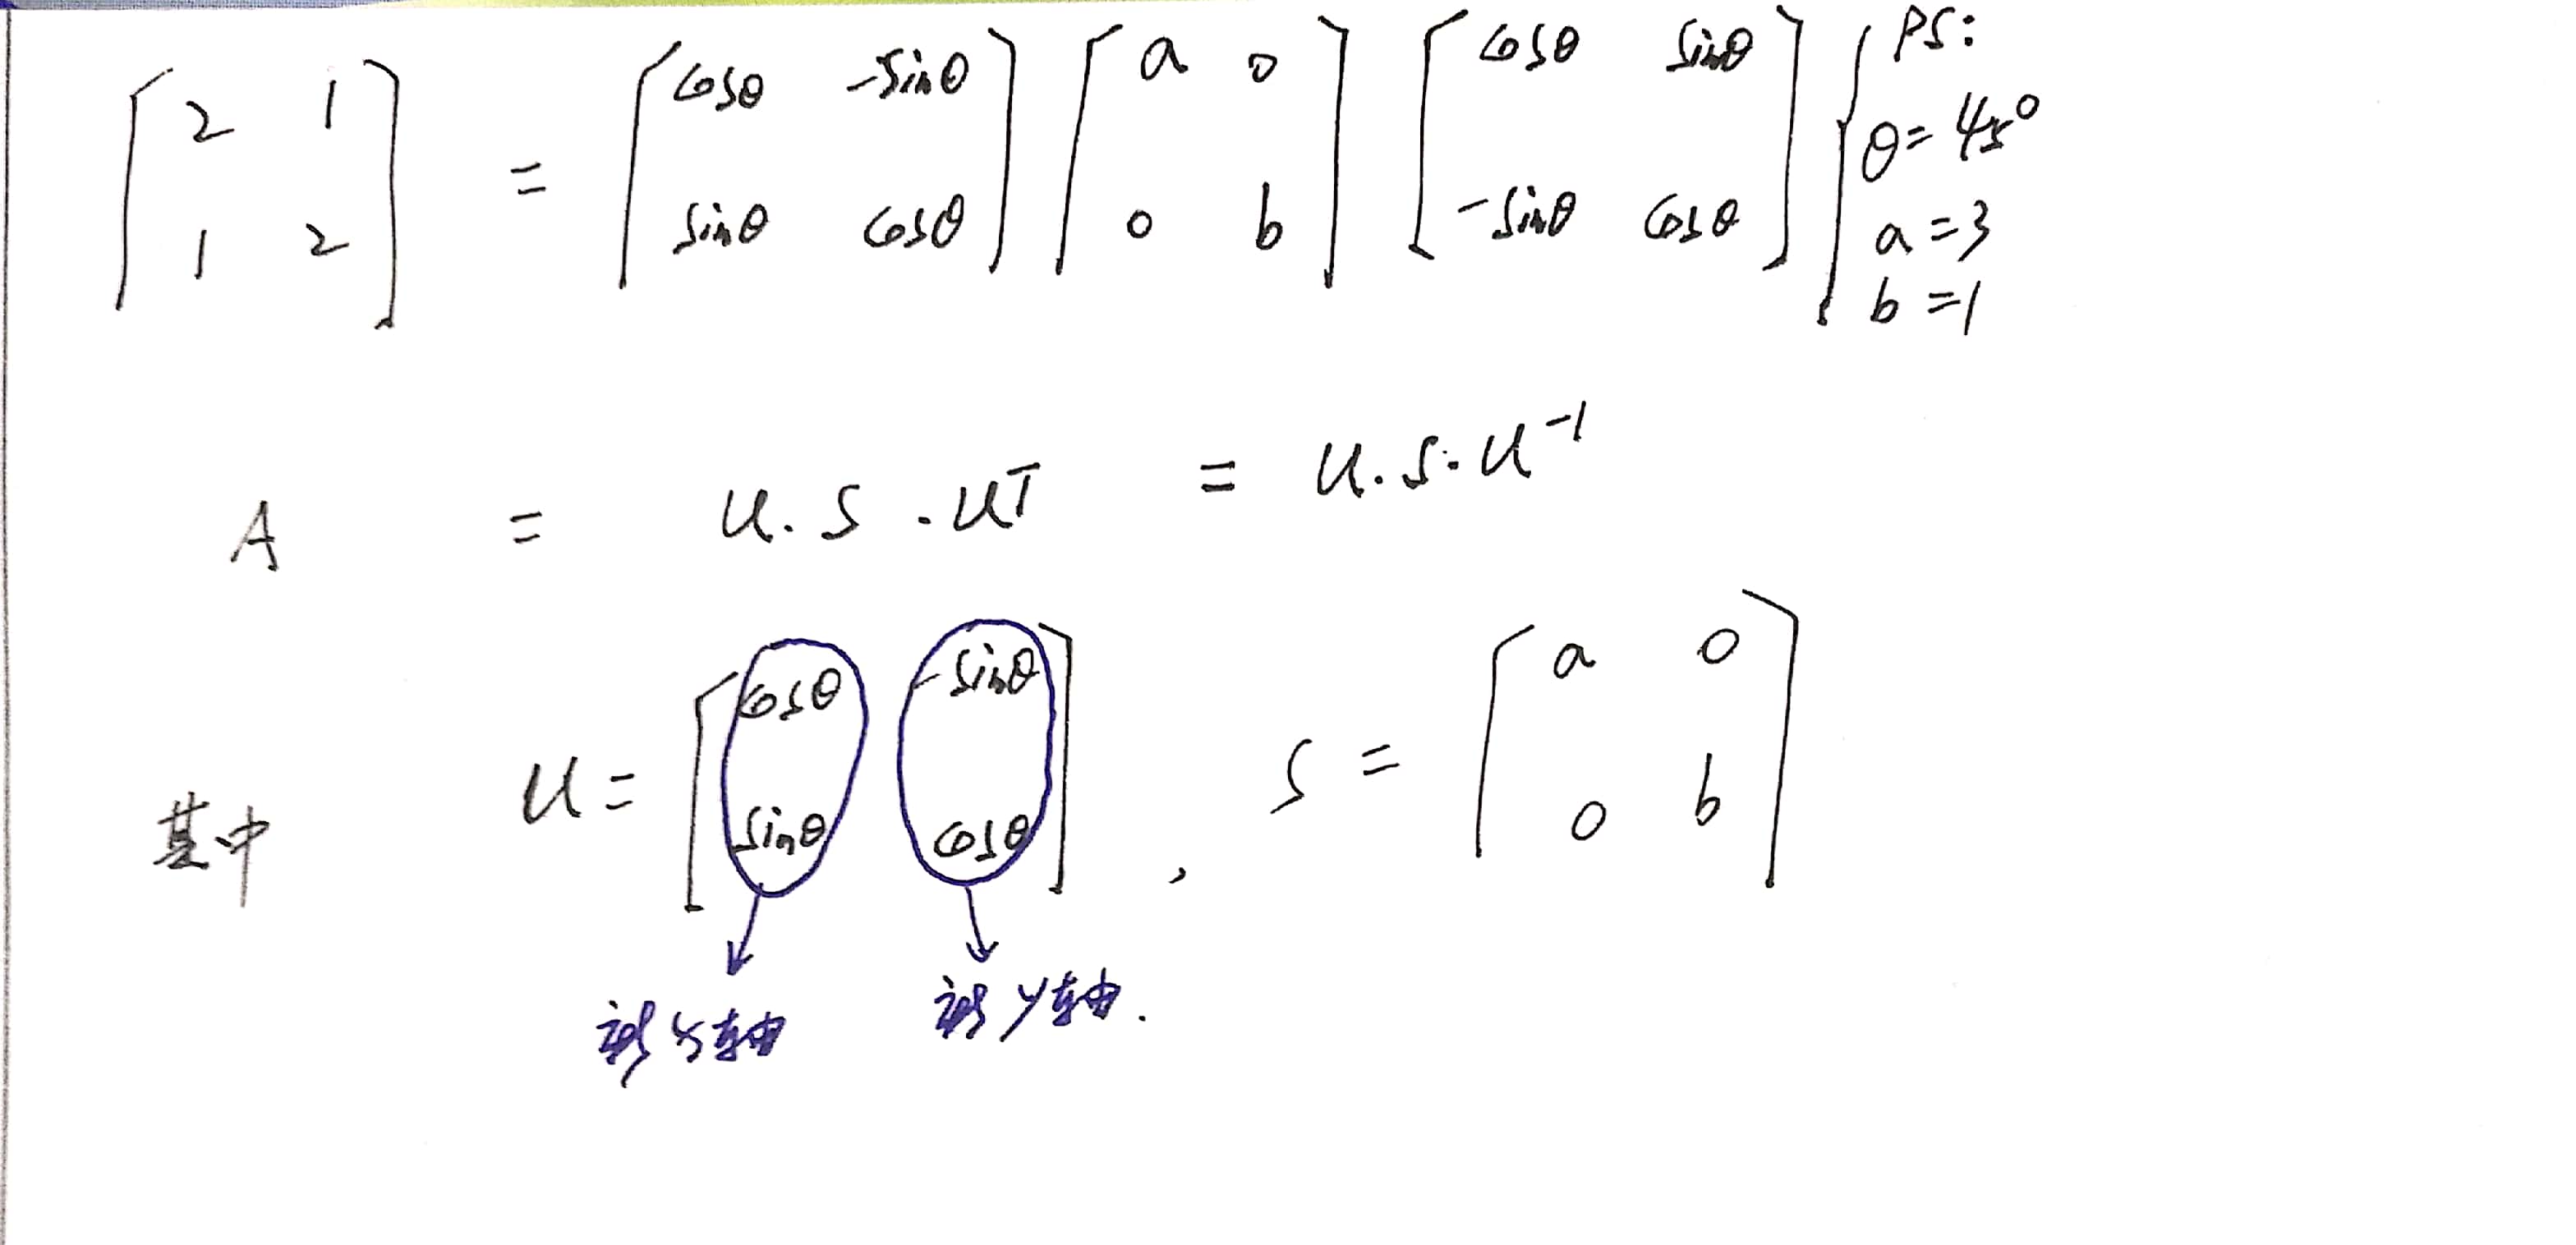 [2 1; 1 2] = [cosθ -sinθ; sinθ cosθ] [a 0; 0 b] [cosθ sinθ; -sinθ cosθ] { PS: θ=45° a=3 b=1
A = U.S.U^T = U.S.U^-1
其中 U= [cosθ -sinθ; sinθ cosθ] , S = [a 0; 0 b]
新x轴 新y轴.